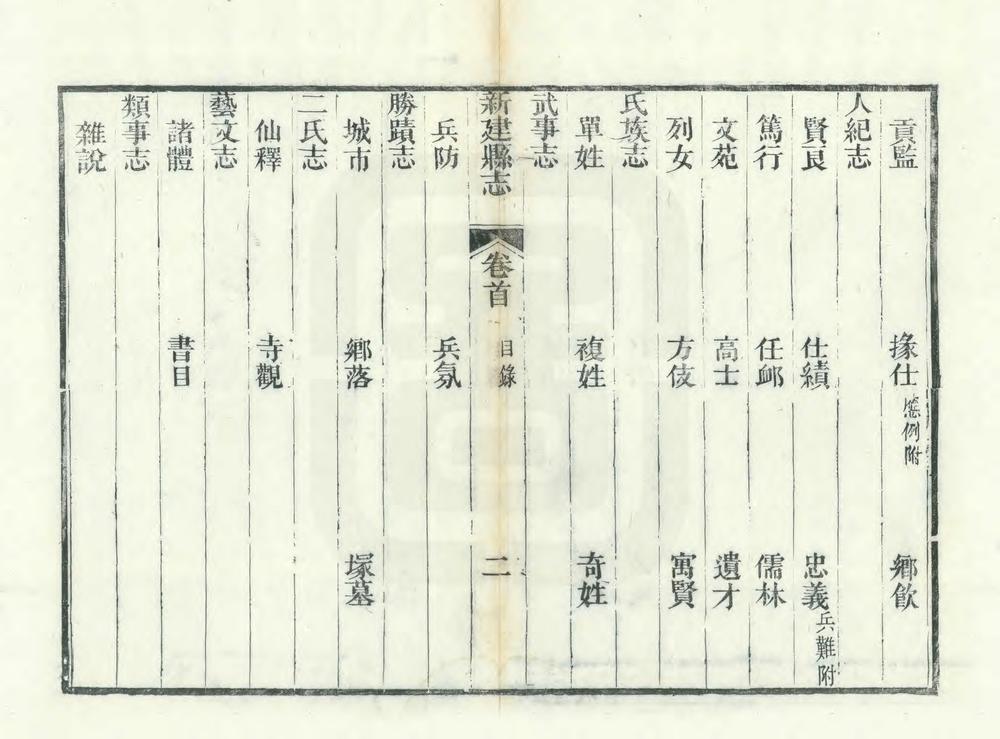 貢監　掾仕 應例附　鄉飲
人紀志
賢良　仕績　忠義 兵難附
篤行　任卹　儒林
文苑　高士　遺才
列女　方伎　寓賢
氏族志
單姓　複姓　奇姓
武事志
新建縣志　卷首　目錄　二
兵防　兵氛
勝蹟志
城市　鄉落　塚墓
二氏志
仙釋　寺觀
藝文志
諸體　書目
類事志
雜說